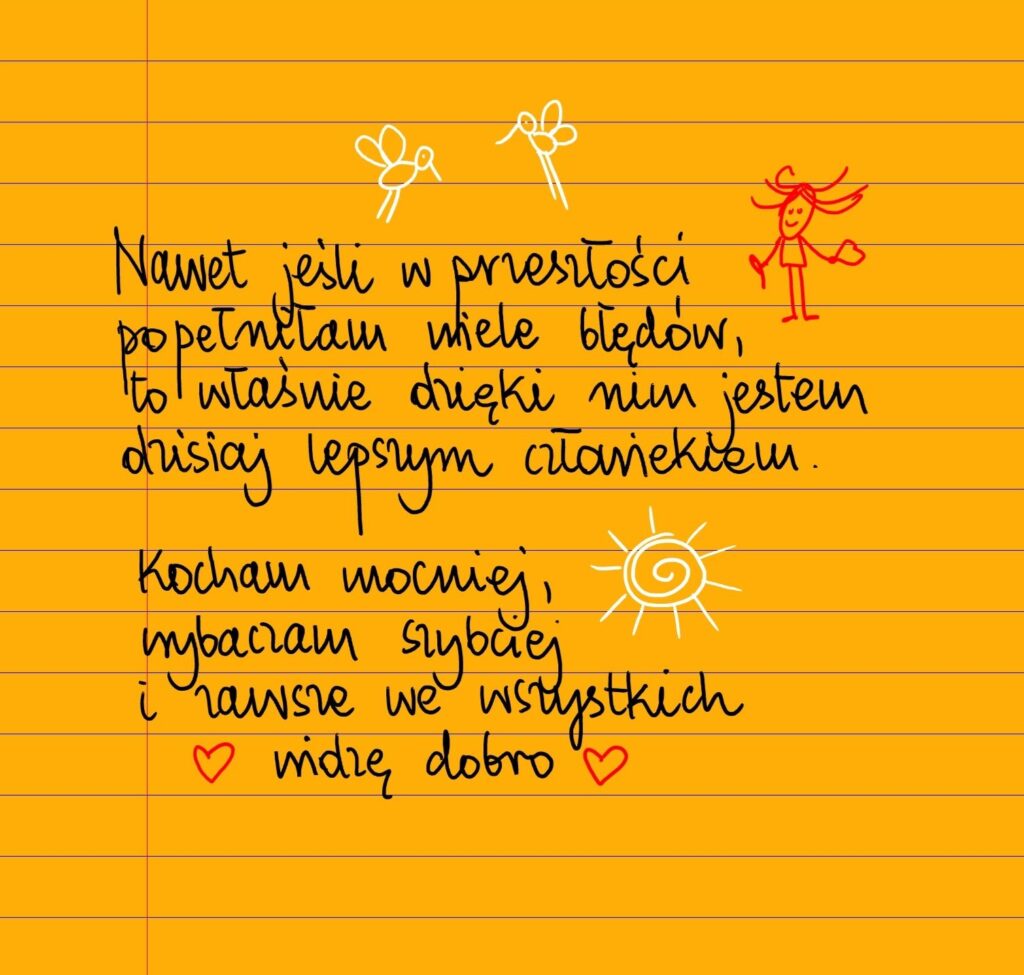 Nawet jeśli w przeszłości
popełniłam wiele błędów,
to właśnie dzięki nim jestem
dzisiaj lepszym człowiekiem.
Kocham mocniej,
wybaczam szybciej
i zawsze we wszystkich
widzę dobro